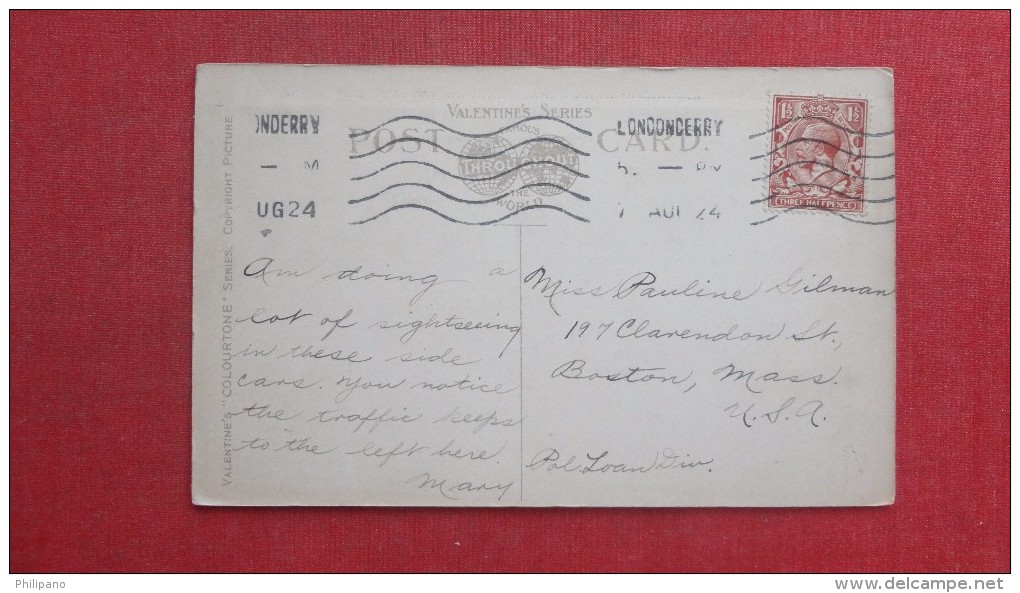 VALENTINE'S SERIES
POST CARD.
FAMOUS
THROUGHOUT
THE
WORLD
ONDERRY
M
UG24
LONDONDERRY
5. — PM
7 AU 24
1½ 1½
THREE HALFPENCE
VALENTINE'S "COLOURTONE" SERIES. COPYRIGHT PICTURE
Am doing a
lot of sightseeing
in these side
cars. You notice
the traffic keeps
to the left here.
Mary
Miss Pauline Gilman
197 Clarendon St.,
Boston, Mass.
U.S.A.
Pol. Loan Div.
Philipano
www.delcampe.net